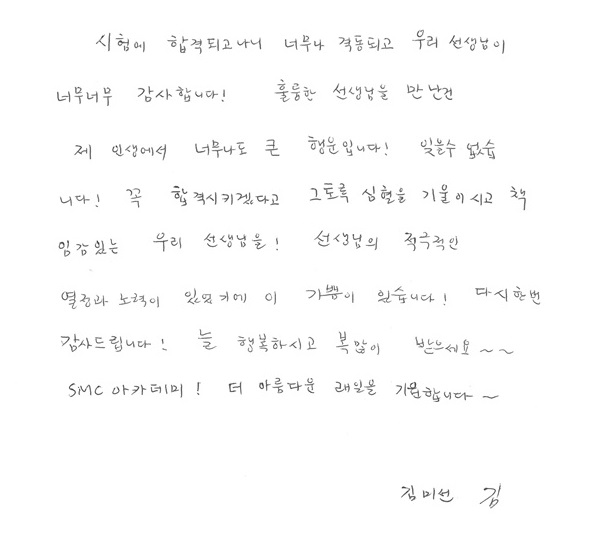 시험에 합격되고나니 너무나 격동되고 우리 선생님이
너무너무 감사합니다! 훌륭한 선생님을 만난건
제 인생에서 너무나도 큰 행운입니다! 잊을수 없습
니다! 꼭 합격시키겠다고 그토록 심혈을 기울이시고 책
임감있는 우리 선생님을! 선생님의 적극적인
열정과 노력이 있었기에 이 기쁨이 있습니다! 다시한번
감사드립니다! 늘 행복하시고 복많이 받으세요~~
SMC 아카데미! 더 아름다운 래일을 기원합니다~
김미선 김